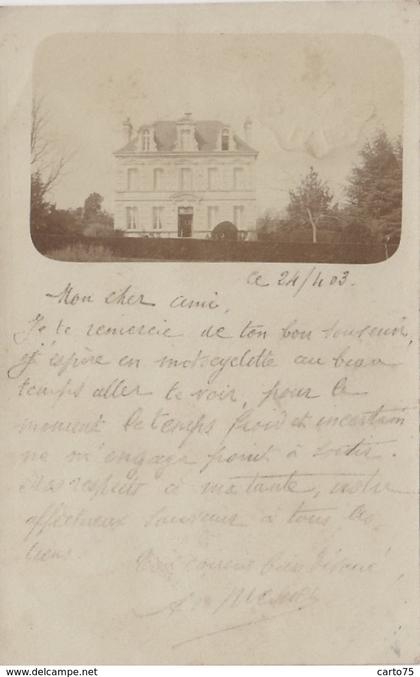 ce 24/4 03.
Mon cher ami,
Je te remercie de ton bon souvenir,
j'espère en motocyclette au beau
temps aller te voir, pour le
moment le temps froid et incertain
ne m'engage point à sortir.
Mes respects à ma tante, notre
affectueux souvenir à tous les
tiens.
Ton cousin bien dévoué,
carto75